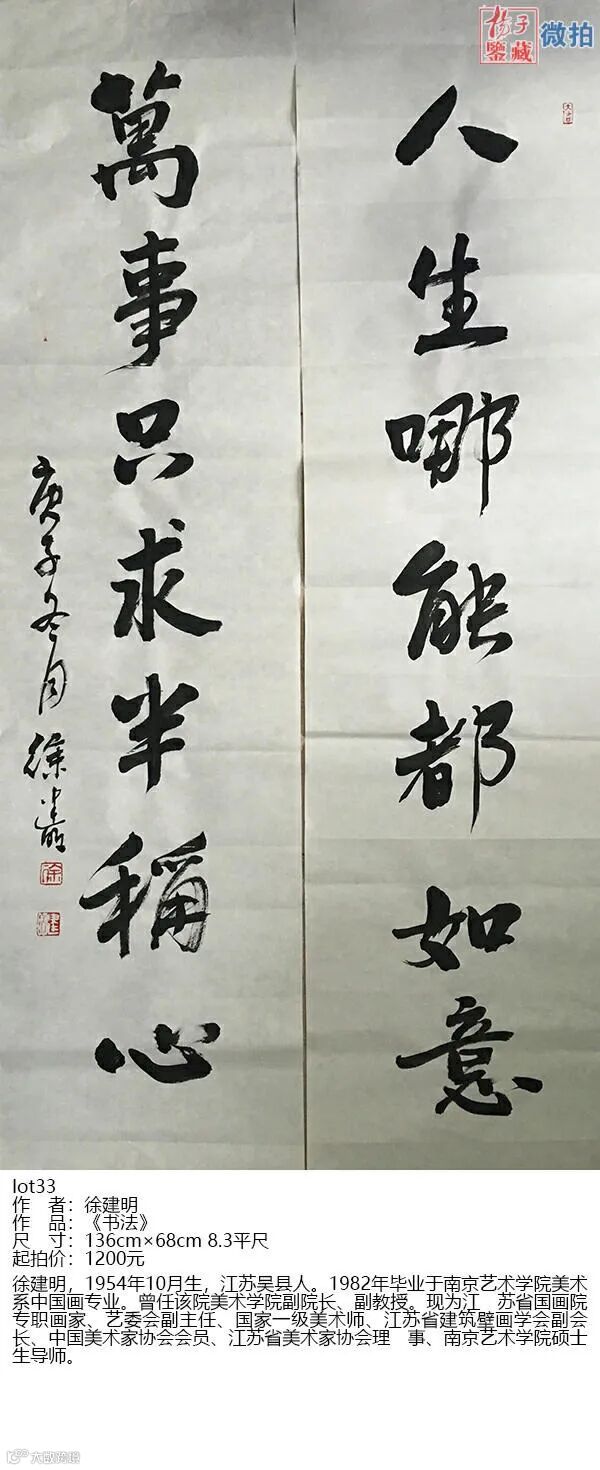 杨子
鑒藏
微拍
人生哪能都如意
萬事只求半稱心
庚子冬月 徐建明
徐
lot33
作 者：徐建明
作 品：《书法》
尺 寸：136cm×68cm 8.3平尺
起拍价：1200元
徐建明，1954年10月生，江苏吴县人。1982年毕业于南京艺术学院美术
系中国画专业。曾任该院美术学院副院长、副教授。现为江 苏省国画院
专职画家、艺委会副主任、国家一级美术师、江苏省建筑壁画学会副会
长、中国美术家协会会员、江苏省美术家协会理 事、南京艺术学院硕士
生导师。
大数跨境